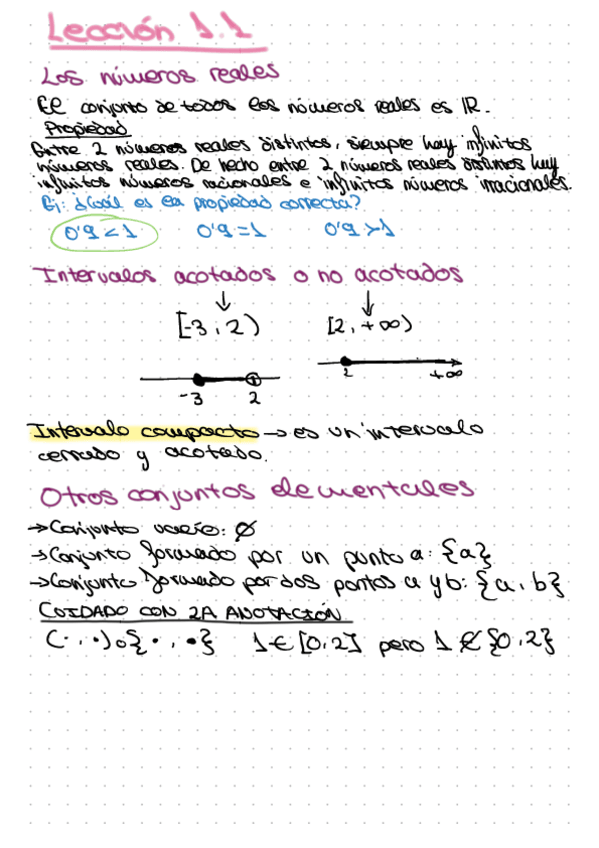 Lección 1.1
Los números reales
El conjunto de todos los números reales es ℝ.
Propiedad
Entre 2 números reales distintos, siempre hay infinitos
números reales. De hecho entre 2 números reales distintos hay
infinitos números racionales e infinitos números irracionales.
Ej: ¿Cuál es la propiedad correcta?
0,9 < 1 0,9 = 1 0,9 > 1
Intervalos acotados o no acotados
[-3, 2) [2, +∞)
-3 2 2 +∞
Intervalo compacto → es un intervalo
cerrado y acotado.
Otros conjuntos elementales
→ Conjunto vacío: ∅
→ Conjunto formado por un punto a: {a}
→ Conjunto formado por dos puntos a y b: {a, b}
CUIDADO CON LA ANOTACIÓN
(·, ·) o {·, ·} 1 ∈ [0, 2] pero 1 ∉ {0, 2}